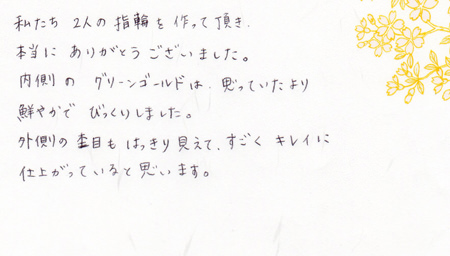 私たち 2人の指輪を作って頂き、
本当に ありがとうございました。
内側の グリーンゴールドは、思っていたより
鮮やかで びっくりしました。
外側の杢目も はっきり見えて、すごく キレイに
仕上がっていると思います。